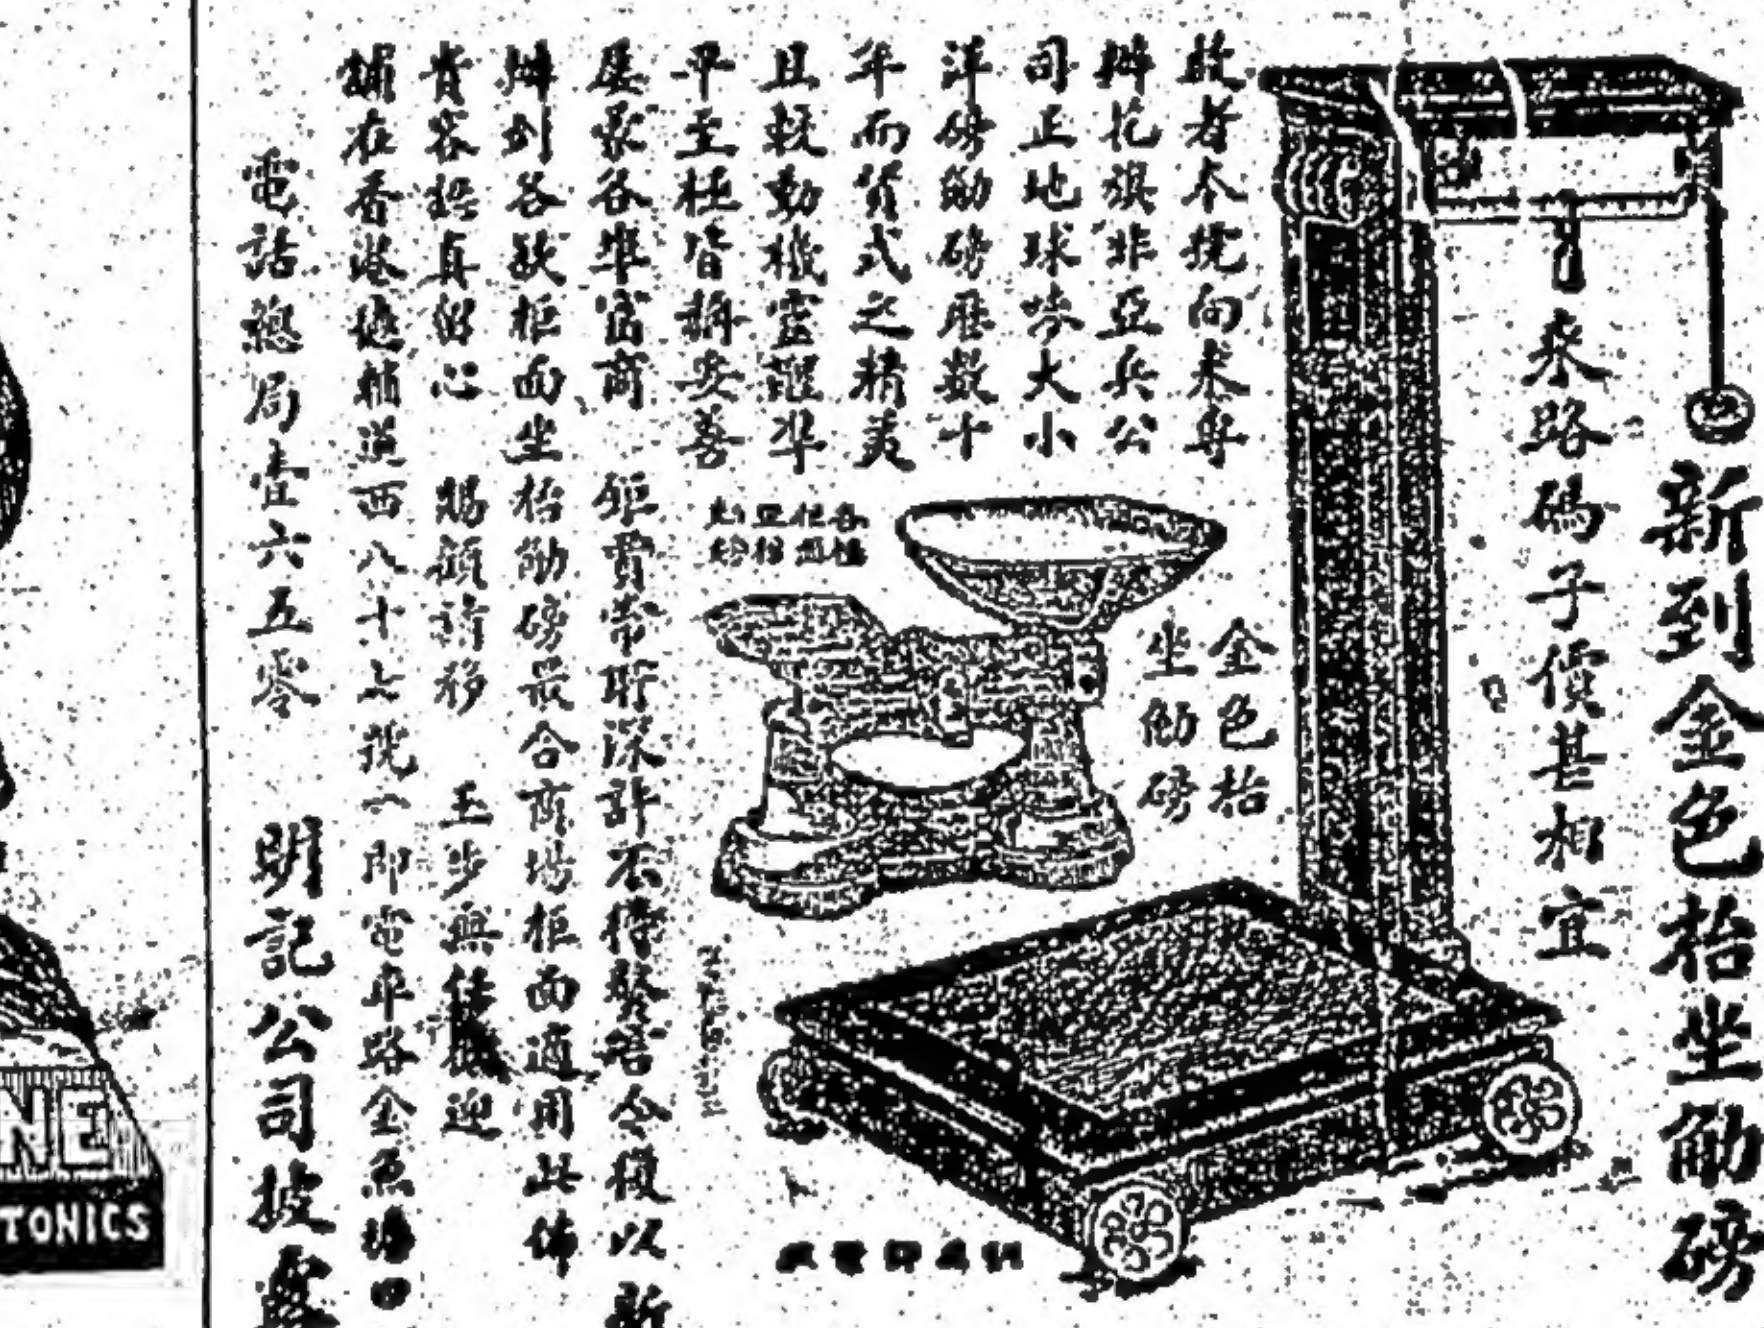 新到金色枱坐觔磅
來路碼子價甚相宜
啟者本號向來專
辦花旗非亞兵公
司正地球嘜大小
洋磅觔磅歷數十
年而貨式之精美
且較動機靈醒準
平至極皆稱妥善
屢蒙各準富商 鉅賈常所深許不待贅 今復以新
辦到各款柜面坐枱觔磅最合商塲柜面適用此佈
貴客認真留心 賜顧請移 玉步無任 迎
舖在香港德輔道西八十七號一即電車路金魚塘口
電話總局壹六五零 明記公司披露
金色枱
坐觔磅
NE
TONICS